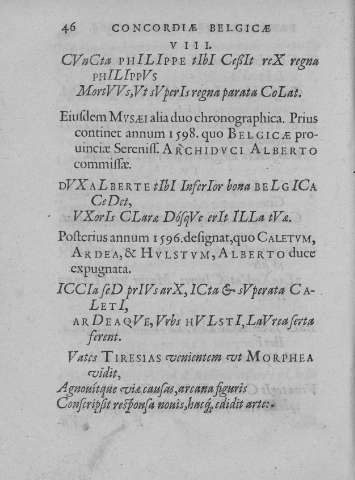 46 CONCORDIÆ BELGICÆ
VIII.
CVnCta PHILIPPE tIbI CeßIt reX regna
PHILIPpVs
MortVVs, Vt sVperIs regna parata CoLat.
Eiuſdem MVSÆI alia duo chronographica. Prius
continet annum 1598. quo BELGICÆ pro-
uinciæ Sereniſſ. ARCHIDVCI ALBERTO
commiſſæ.
DVX ALBERTE tIbI InferIor bona BELGICA
CeDet,
VXorIs CLaræ DósqVe erIt ILLa tVæ.
Poſterius annum 1596. deſignat, quo CALETVM,
ARDEA, & HVLSTVM, ALBERTO duce
expugnata.
ICCIa ſeD prIVs arX, ICta & ſVperata CA-
LETI,
ARDEAQVE, Vrbs HVLSTI, LaVrea ſerta
ferent.
Vates TIRESIAS venientem vt MORPHEA
vidit,
Agnouítque viæ cauſas, arcana figuris
Conſcripſit reſponſa nouis, hacq́, edidit arte: